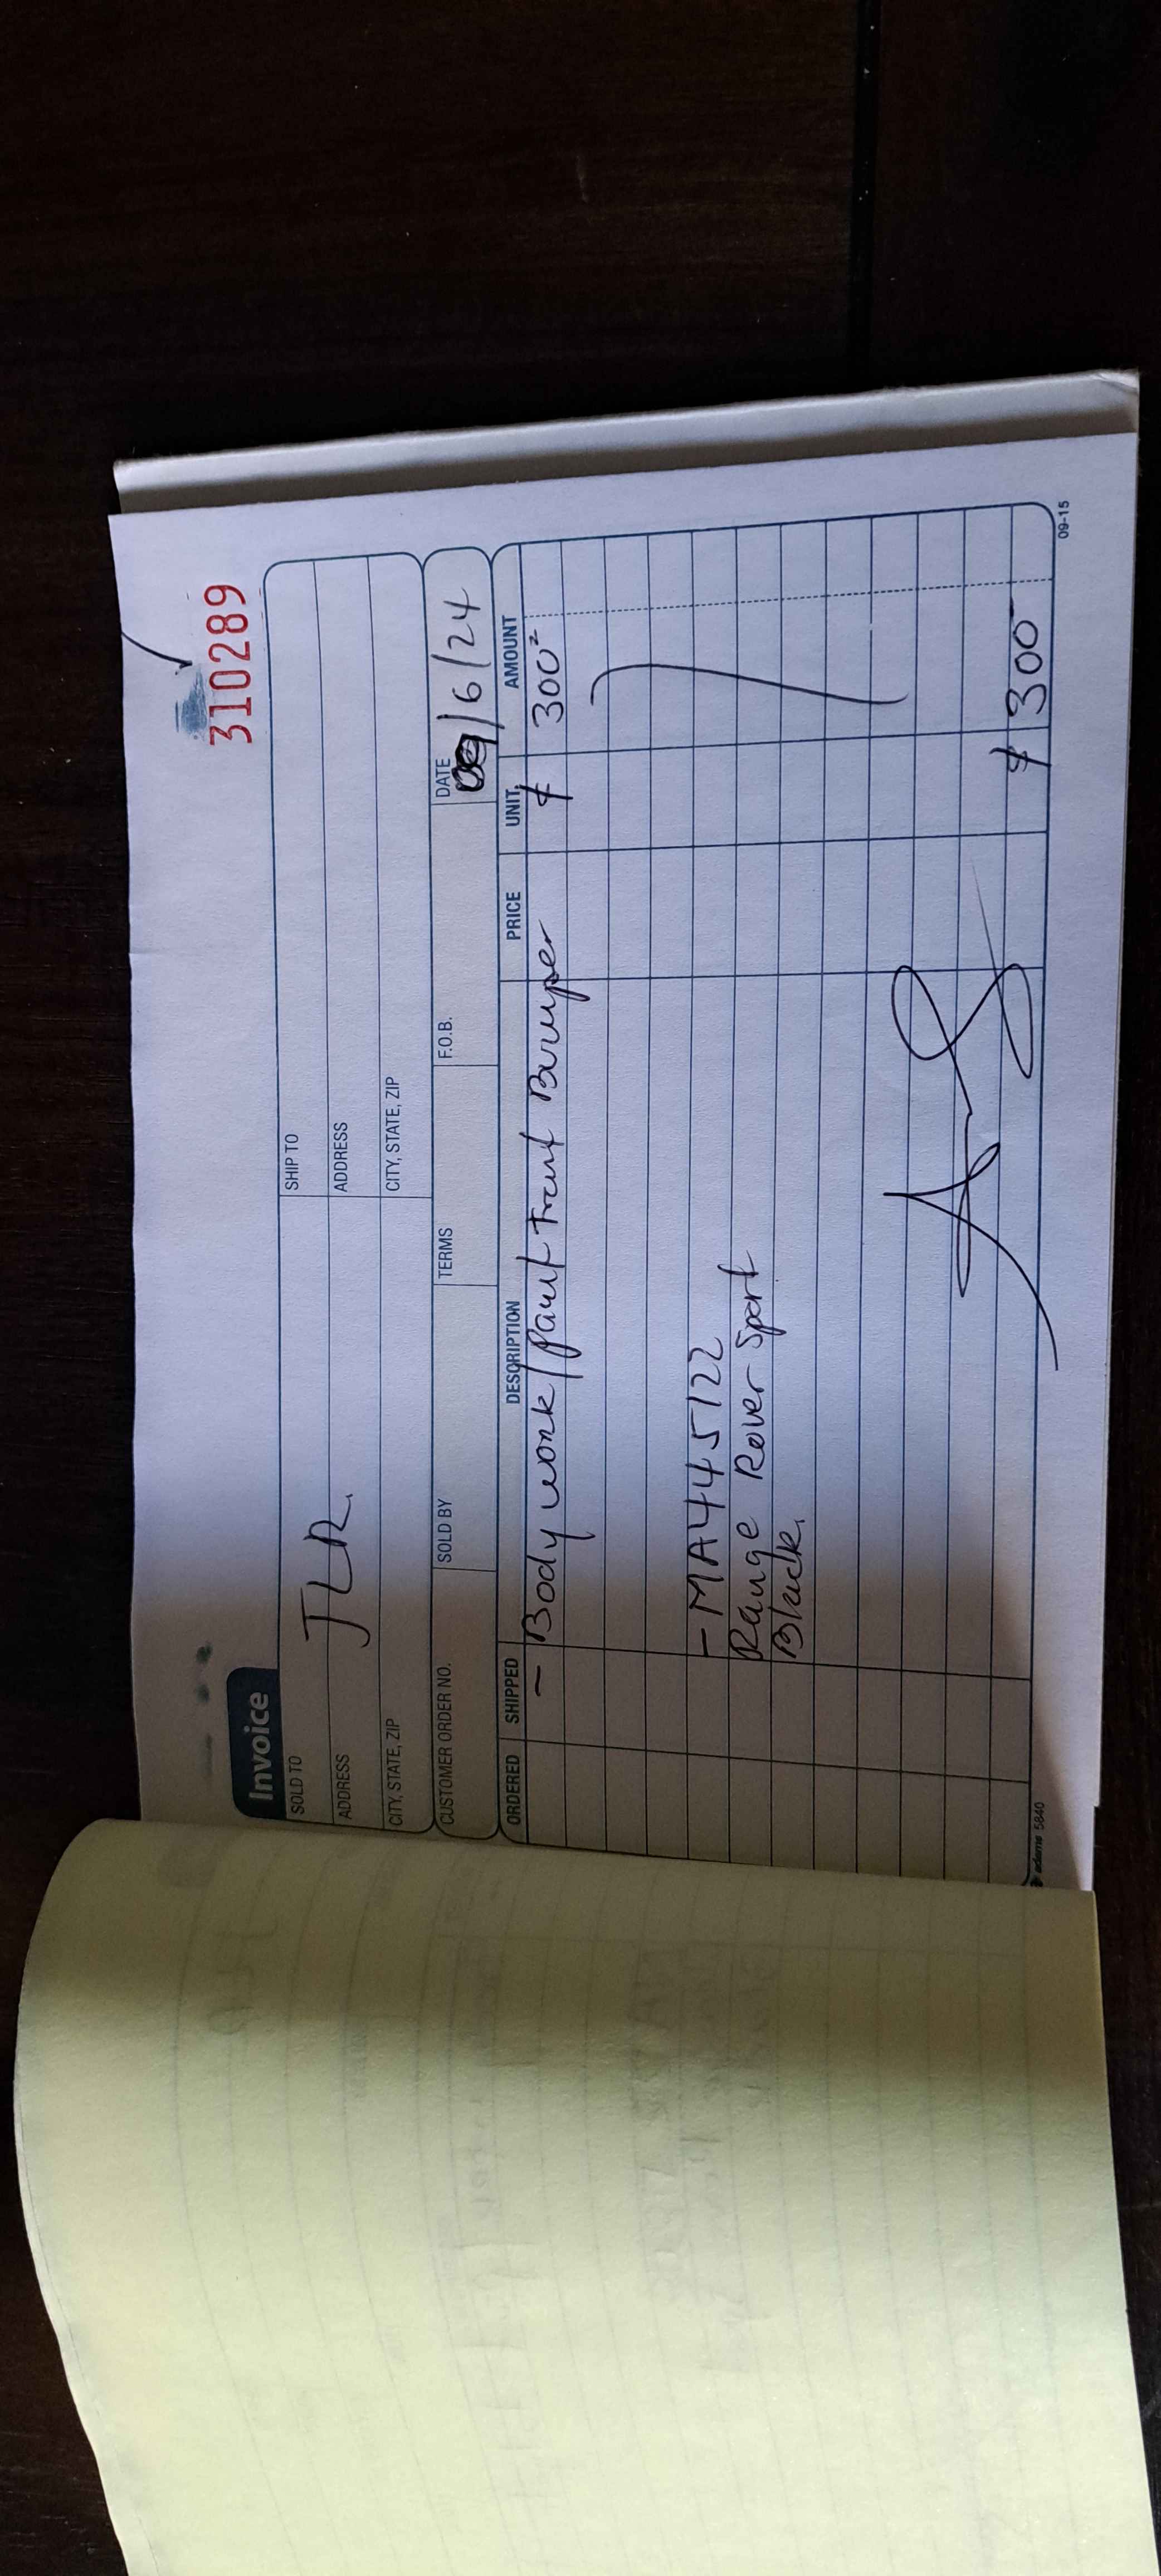 310289
Invoice
SOLD TO JLR.
SHIP TO
ADDRESS
ADDRESS
CITY, STATE, ZIP
CITY, STATE, ZIP
CUSTOMER ORDER NO. SOLD BY TERMS F.O.B. DATE /6/24
ORDERED SHIPPED DESCRIPTION PRICE UNIT AMOUNT
- Body work/Paint Front Bumper $ 300
- MA445122
Range Rover Sport
Black.
$ 300
adams 5840
09-15